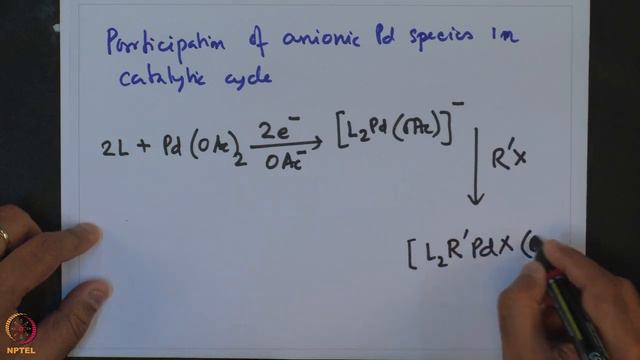 Participation of anionic Pd species in
catalytic cycle
2L + Pd(OAc)₂ 2e⁻ [L₂Pd(OAc)]⁻
OAc⁻
R'X
[L₂R'PdX(
NPTEL